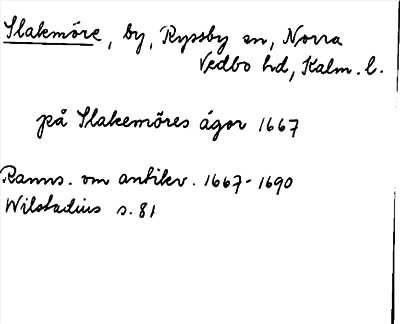 Slakemöre, by, Ryssby sn, Norra
Vedbo hd, Kalm. l.
på Slakemöres ägor 1667
Ranns. om antikv. 1667-1690
Wilstadius s. 81